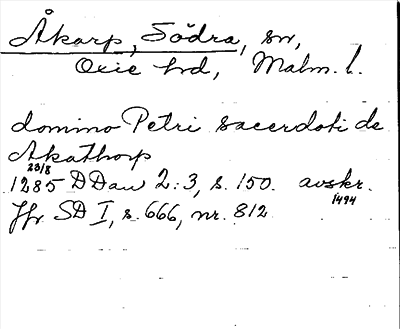 Åkarp, Södra, sn,
Oxie hd, Malm. l.
domino Petri sacerdoti de
Akathorp
23/8
1285 DDan 2:3, s. 150. avskr.
1494
Jfr SD I, s. 666, nr. 812